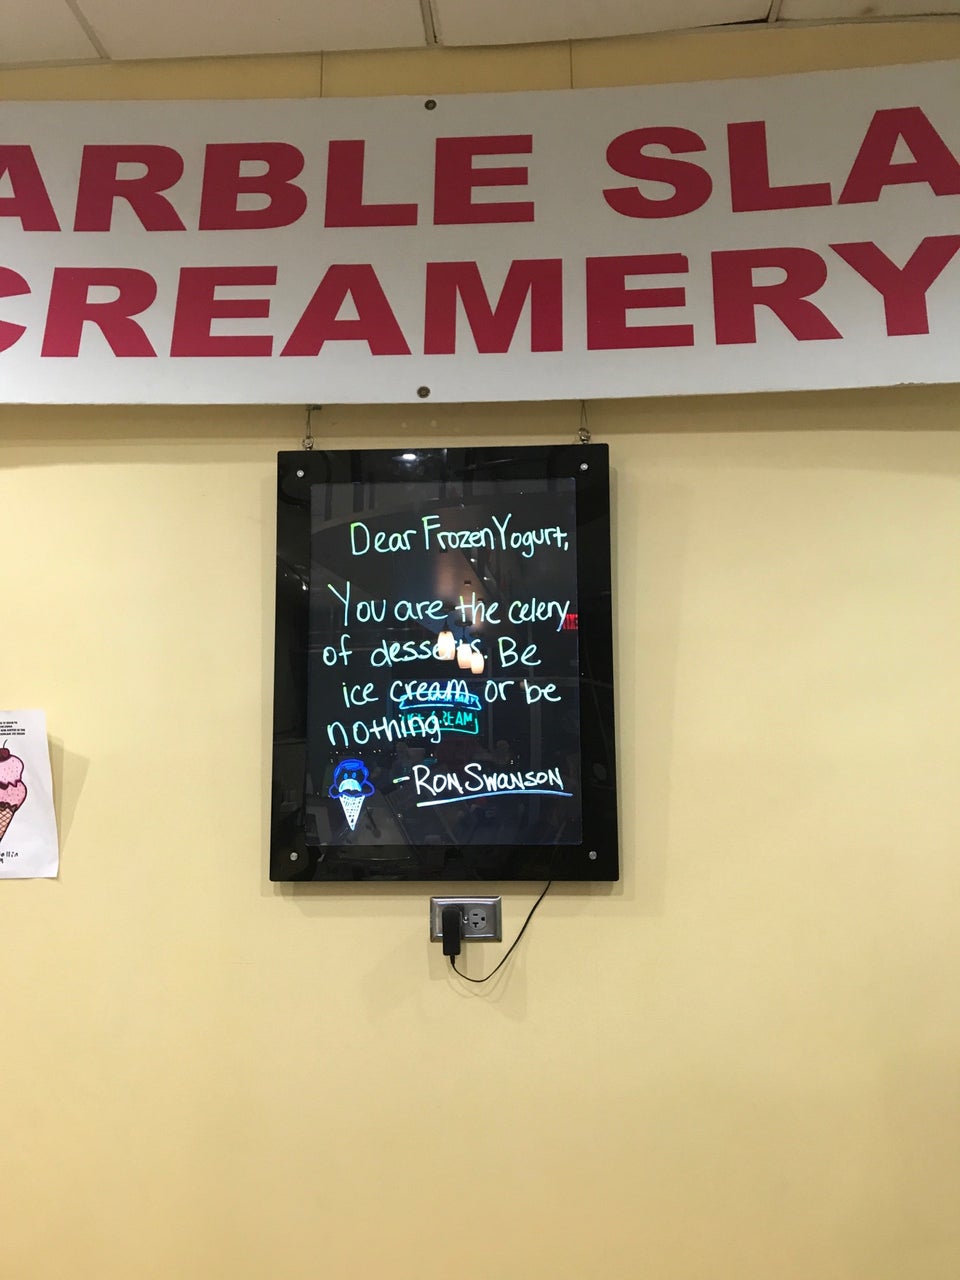 ARBLE SLA
CREAMERY
Dear Frozen Yogurt,
You are the celery
of desserts. Be
ice cream or be
nothing
- RON SWANSON
CREAM